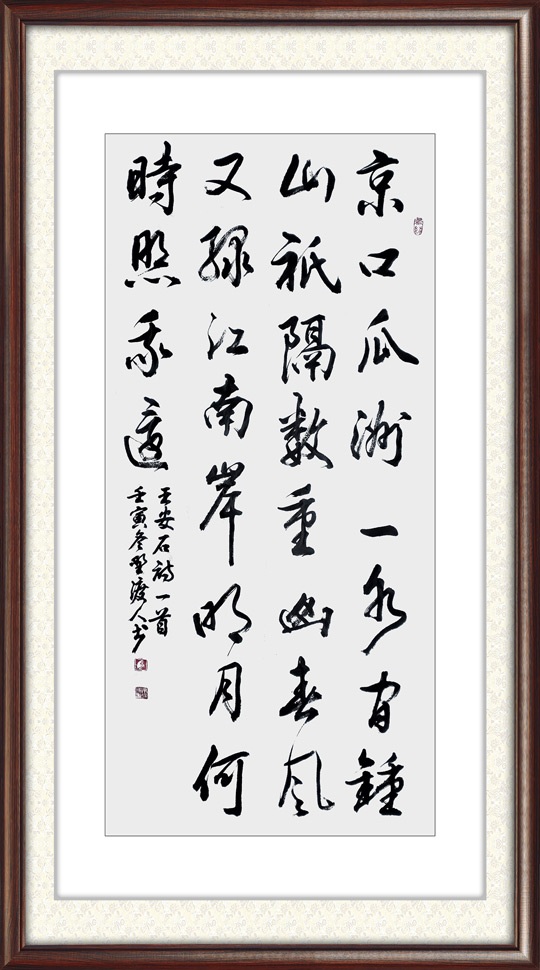 京口瓜洲一水间鍾
山祇隔数重山春风
又绿江南岸明月何
時照我還
王安石詩一首
壬寅冬野渡人书